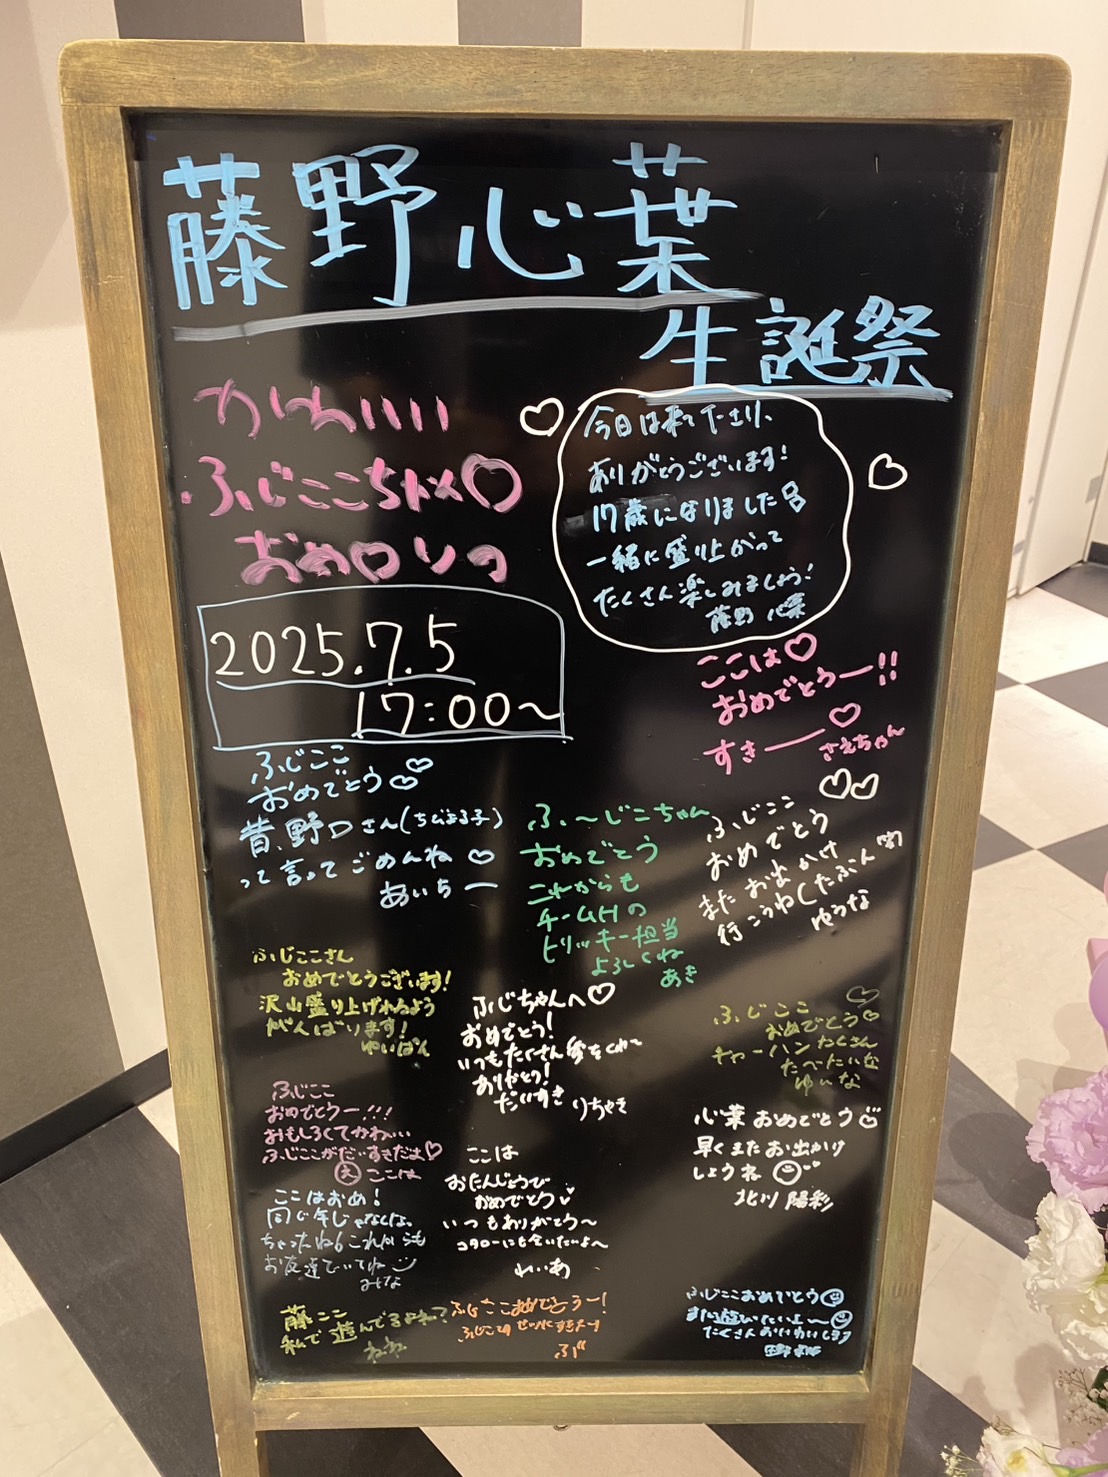 藤野心葉
生誕祭
かわいいい
ふじここちゃん♡
おめ♡
今日は来て下さり、
ありがとうございます!
17歳になりました
一緒に盛り上がって
たくさん楽しみましょう!
藤野心葉
2025.7.5
17:00~
ここは♡
おめでとうー!!
すきー♡
さえちゃん
ふじここ
おめでとう♡♡
昔、野口さん(ちびまる子)
って言ってごめんね♡
あいちー
ふ〜じこちゃん
おめでとう
これからも
チームHの
トリッキー担当
よろしくね
あき
ふじここ
おめでとう
またおでかけ
行こうねしたぶん(笑)
ゆうな
ふじここさん
おめでとうございます!
沢山盛り上げれるよう
がんばります!
ゆいぱん
ふじちゃんへ♡
おめでとう!
いつもたくさん
ありがとう!
だいすき りちゃき
ふじここ♡
おめでとう♡
チャーハンたくさん
たべたいな
ゆいな
ふじここ
おめでとうー!!!
おもしろくてかわいい
ふじここがだいすきだよ♡
ここは
心葉おめでとう
早くまたお出かけ
しようね
北川陽彩
ここは
おたんじょうび
おめでとう
いつもありがとう~
コタローにも会いたいよ~
れいあ
ここはおめ!
同じ年じゃなくなっ
ちゃったねこれからも
お友達でいてね
みな
藤ここ
私で遊んでるよね?
ねね
ふじここおめでとうー!
ふじここおめでとう
また遊びたいよ~
たくさんお祝いしよう